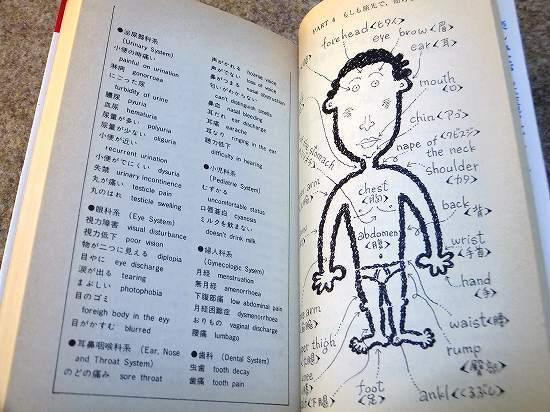 ●泌尿器科系
(Urinary System)
小便の時痛い
painful on urination
淋病 gonorroea
にごった尿
turbidity of urine
膿尿 pyuria
血尿 hematuria
尿量が多い polyuria
尿量が少ない okguria
小便が近い
recurrent urination
小便がでにくい dysuria
失禁 urinary incontinence
丸が痛い testicle pain
丸のはれ testicle swelling
●眼科系 (Eye System)
視力障害 visual disturbance
視力低下 poor vision
物が二つに見える diplopia
目やに eye discharge
涙が出る tearing
まぶしい photophobia
目のゴミ
foreigh body in the eyy
目がかすむ blurred
●耳鼻咽喉科系 (Ear, Nose
and Throat System)
のどの痛み sore throat
声がかれる hoarse voice
声がでない loss of voice
鼻がつまる nasal obstruction
匂いがわからない
can't distinguish smells
鼻血 nasal bleeding
耳だれ ear discharge
耳痛 earache
耳なり ringing in the ear
聴力低下
difficulty in hearing
●小児科系
(Pediatric System)
むずかる
uncomfortable status
口唇蒼白 cyanosis
ミルクを飲まない
doesn't drink milk
●婦人科系
(Gynecologic System)
月経 menstruation
無月経 amenorrhoea
下腹部痛 low abdominal pain
月経困難症 dysmenorrhoea
おりもの vaginal discharge
腰痛 lumbago
●歯科 (Dental System)
虫歯 tooth decay
歯痛 tooth pain
PART 4 もしも旅先で、
forehead<ヒタイ>
eye brow<眉>
ear<耳>
mouth
<口>
chin<アゴ>
nape of
the neck
<クビスジ>
shoulder
<カタ>
the stomach
chest
<胸>
back
<背>
abdomen
<腹>
wrist
<手首>
hand
<手>
waist<腰>
rump
<臀部>
thigh
foot
<足>
ankl<くるぶし>
<下腿>